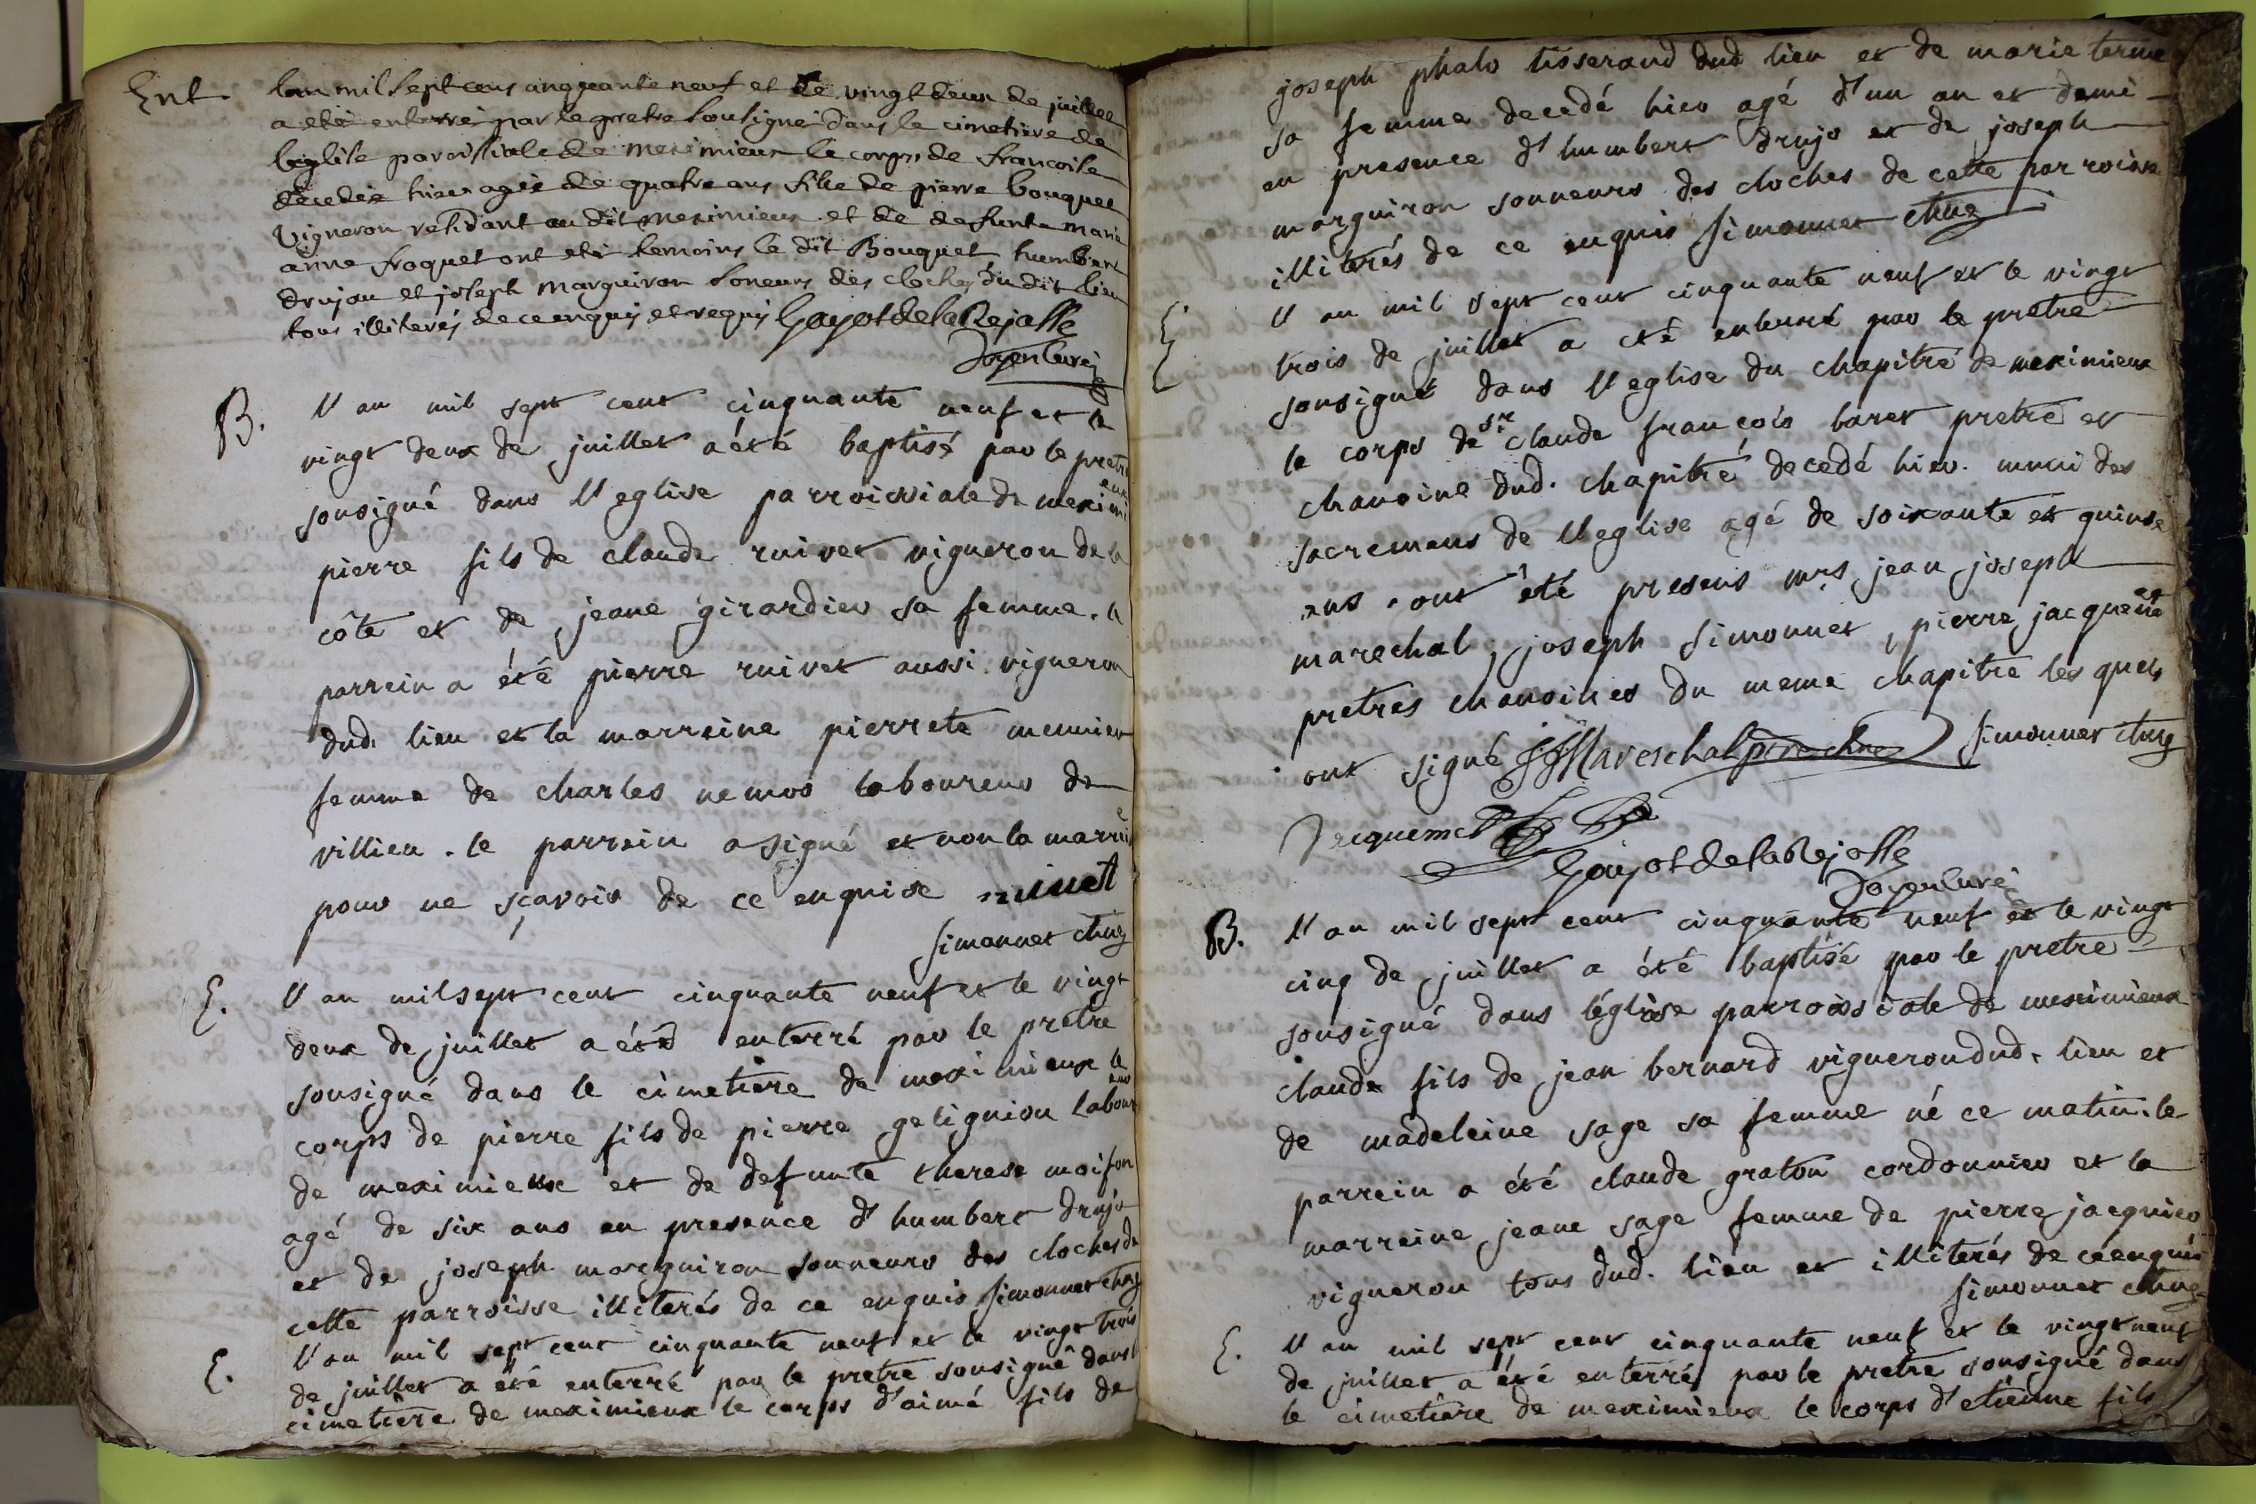 Ent
lan mil sept cens cinqquante neuf et le vingt deux de juillet
a eté enterré par le pretre sousigné dans le cimetiere de
leglise paroissiale de meximieux le corps de francoise
decedée hier agée de quatre ans fille de pierre bouquet
vigneron residant au dit meximieux et de defunte marie
anne froquet ont eté temoins le dit Bouquet humbert
drujon et joseph marguiron soneurs des cloches du dit lieu
tous illiterés de ce enquis et requis Gayot de la Rejasse
Doyen curé
B.
l'an mil sept cent cinquante neuf et le
vingt deux de juillet a été baptisé par le pretre
sousigné dans l'eglise parroissiale de meximieux
pierre fils de claude ruivet vigneron de la
côte et de jeane girardier sa femme. le
parrein a été pierre ruivet aussi vigneron
dud. lieu et la marreine pierrete meunier
femme de charles nemos laboureur de
villieu. le parrein a signé et non la marreine
pour ne sçavoir de ce enquise ruivet
simonnet chne
E.
l'an mil sept cent cinquante neuf et le vingt
deux de juillet a été enterré par le prêtre
sousigné dans le cimetiere de meximieux le
corps de pierre fils de pierre gelignion laboureur
de meximieux et de defunte therese moifon
agé de six ans en presence d'humbert drujo
et de joseph marguiron sonneurs des cloches de
cette parroisse illiterés de ce enquis simonnet chne
E.
l'an mil sept cent cinquante neuf et le vingt trois
de juillet a été enterré par le pretre sousigné dans
cimetiere de meximieux le corps d'aimé fils de
joseph phalo tisserand dud lieu et de marie terme
sa femme decedé hier agé d'un an et demi
en presence d'humbert drujo et de joseph
marguiron sonneurs des cloches de cette parroisse
illiterés de ce enquis simonnet chne
E
l'an mil sept cent cinquante neuf et le vingt
trois de juillet a été enterré par le prêtre
sousigné dans l'eglise du chapitre de meximieux
le corps de sr claude françois baret pretre et
chanoine dud. chapitre decedé hier. muni des
sacremens de l'eglise agé de soixante et quinse
ans. ont été presens mrs jean joseph
marechal, joseph simonnet, pierre jacquemet
pretres chanoines du meme chapitre les quels
ont signé JJMareschal ptre chne simonnet chne
Jacquemet
Gayot de la Rejasse
Doyen curé
B.
l'an mil sept cent cinquante neuf et le vingt
cinq de juillet a été baptisé par le pretre
sousigné dans l'église parroissiale de meximieux
claude fils de jean bernard vigneron dud. lieu et
de madeleine sage sa femme né ce matin. le
parrein a été claude graton cordonnier et la
marreine jeane sage femme de pierre jacquier
vigneron tous dud. lieu et illiterés de ce enquis
simonnet chne
E.
l'an mil sept cent cinquante neuf et le vingt neuf
de juillet a été enterré par le pretre sousigné dans
le cimetiere de meximieux le corps d'etienne fils